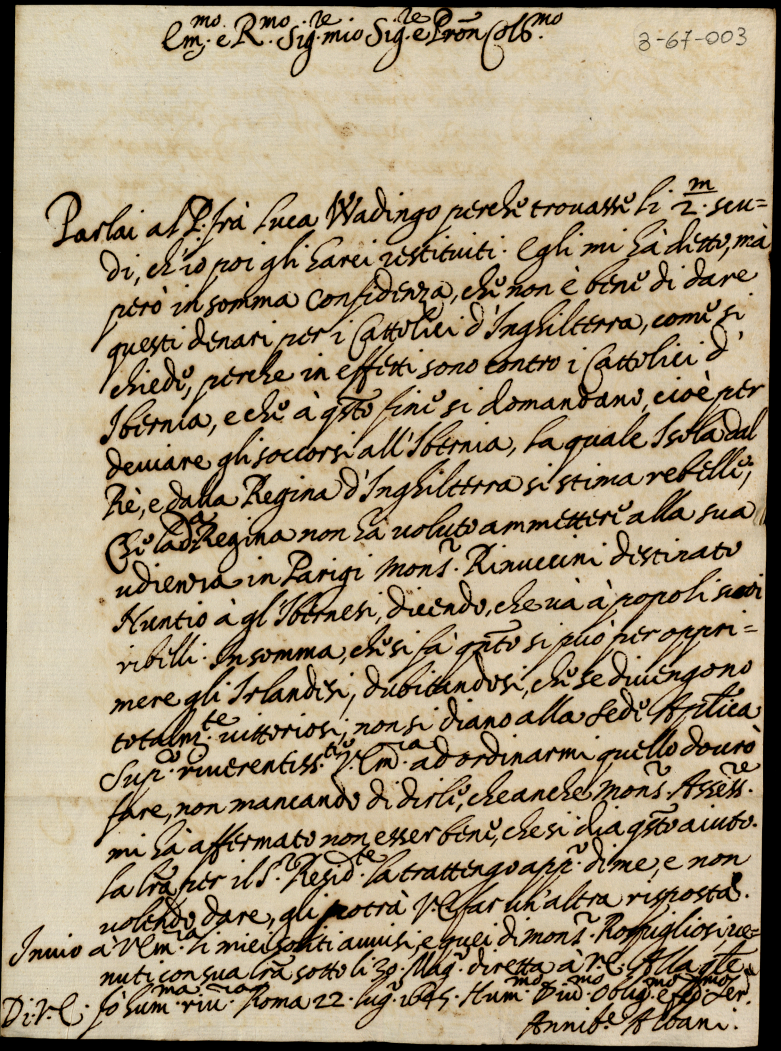 Em.mo e R.mo Sig.re mio Sig.re e Pron Col.mo
3-67-003
Parlai al P. frà Luca Wadingo perche trovasse li 2.m scu=
di, ch'io poi gli harei restituiti. Egli mi hà detto, mà
però in somma confidenza, che non è bene di dare
questi denari per i Cattolici d'Inghilterra, come si
chiede, perche in effetti sono contro i Cattolici d'
Ibernia, e che à qsto fine si domandano, cioè per
deviare gli soccorsi all'Ibernia, la quale Isola dal
Rè, e dalla Regina d'Inghilterra si stima rebelle;
Che la d.a Regina non hà voluto ammettere alla sua
udienza in Parigi Mons.r Rinuccini destinato
Nuntio à gl'Ibernesi, dicendo, che và à popoli suoi
ribelli. In somma, che si fà qnto si può per oppri=
mere gli Irlandesi, dubitandosi, che se divengono
totalm.te vittoriosi, non si diano alla Sede Aplica
Sup.co riverentiss.te V. Em.ia ad ordinarmi quello dovrò
fare, non mancando di dirle, che anche Mons.r Assess.re
mi hà affermato non esser bene, che si dia qsto aiuto.
La lra per il S.r Resid.te la trattengo app.o di me, e non
volendo dare, gli potrà V.E. far un'altra risposta.
Invio a V. Em.ia li miei soliti avvisi, e quei di Mons.r Rospigliosi ve=
nuti con sua lra sotto li 30. Mag.o diretta à V.E. Alla qle
Di V.E. fò hum.ma riv.ia Roma 22. lug.o 1645. Hum.mo Div.mo Oblig.mo Ser.
Annib.e Albani.